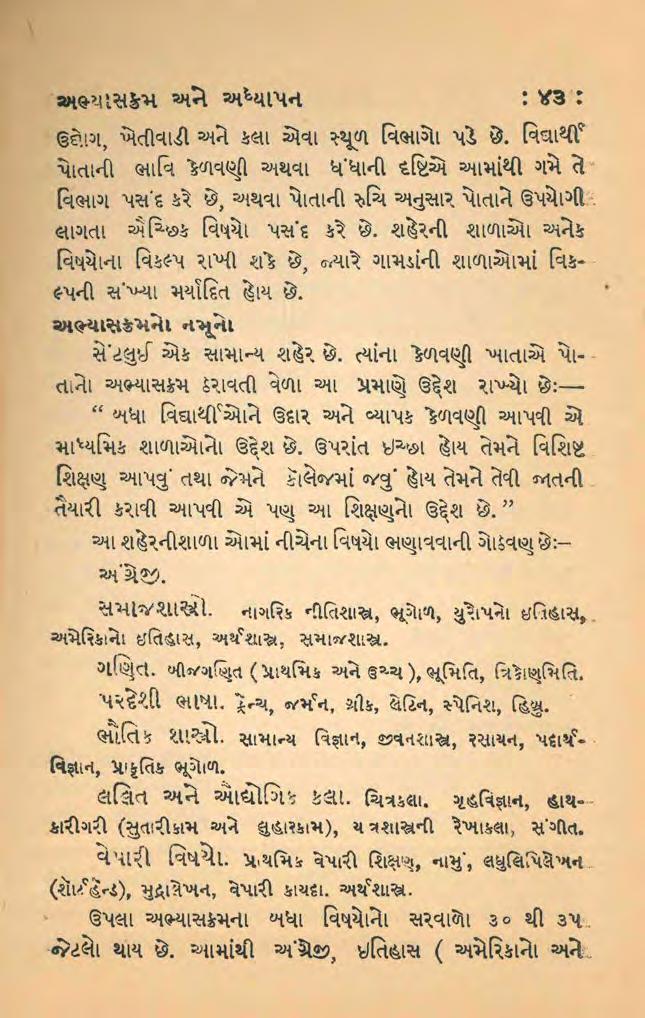 અભ્યાસક્રમ અને અધ્યાપન : ૪૩ :
ઉદ્યોગ, ખેતીવાડી અને કલા એવા સ્થૂળ વિભાગો પડે છે. વિદ્યાર્થી
પોતાની ભાવિ કેળવણી અથવા ધંધાની દૃષ્ટિએ આમાંથી ગમે તે
વિભાગ પસંદ કરે છે, અથવા પોતાની રુચિ અનુસાર પોતાને ઉપયોગી
લાગતા ઐચ્છિક વિષયો પસંદ કરે છે. શહેરની શાળાઓ અનેક
વિષયોના વિકલ્પ રાખી શકે છે, જ્યારે ગામડાંની શાળાઓમાં વિક-
લ્પની સંખ્યા મર્યાદિત હોય છે.
અભ્યાસક્રમનો નમૂનો
સેંટલુઈ એક સામાન્ય શહેર છે. ત્યાંના કેળવણી ખાતાએ પો-
તાનો અભ્યાસક્રમ ઠરાવતી વેળા આ પ્રમાણે ઉદ્દેશ રાખ્યો છેઃ—
“ બધા વિદ્યાર્થીઓને ઉદાર અને વ્યાપક કેળવણી આપવી એ
માધ્યમિક શાળાઓનો ઉદ્દેશ છે. ઉપરાંત ઇચ્છા હોય તેમને વિશિષ્ટ
શિક્ષણ આપવું તથા જેમને કૉલેજમાં જવું હોય તેમને તેવી જાતની
તૈયારી કરાવી આપવી એ પણ આ શિક્ષણનો ઉદ્દેશ છે. ”
આ શહેરનીશાળા ઓમાં નીચેના વિષયો ભણાવવાની ગોઠવણ છેઃ—
અંગ્રેજી.
સમાજશાસ્ત્રો. નાગરિક નીતિશાસ્ત્ર, ભૂગોળ, યુરોપનો ઇતિહાસ,
અમેરિકાનો ઇતિહાસ, અર્થશાસ્ત્ર, સમાજશાસ્ત્ર.
ગણિત. બીજગણિત ( પ્રાથમિક અને ઉચ્ચ ), ભૂમિતિ, ત્રિકોણમિતિ.
પરદેશી ભાષા. ફ્રેન્ચ, જર્મન, ગ્રીક, લેટિન, સ્પેનિશ, હિબ્રુ.
ભૌતિક શાસ્ત્રો. સામાન્ય વિજ્ઞાન, જીવનશાસ્ત્ર, રસાયન, પદાર્થ-
વિજ્ઞાન, પ્રાકૃતિક ભૂગોળ.
લલિત અને ઔદ્યોગિક કલા. ચિત્રકલા. ગૃહવિજ્ઞાન, હાથ-
કારીગરી (સુતારીકામ અને લુહારકામ), યંત્રશાસ્ત્રની રેખાકલા, સંગીત.
વેપારી વિષયો. પ્રાથમિક વેપારી શિક્ષણ, નામું, લઘુલિપિલેખન
(શૉર્ટહૅન્ડ), મુદ્રાલેખન, વેપારી કાયદા. અર્થશાસ્ત્ર.
ઉપલા અભ્યાસક્રમના બધા વિષયોનો સરવાળો ૩૦ થી ૩૫
જેટલો થાય છે. આમાંથી અંગ્રેજી, ઇતિહાસ ( અમેરિકાનો અને